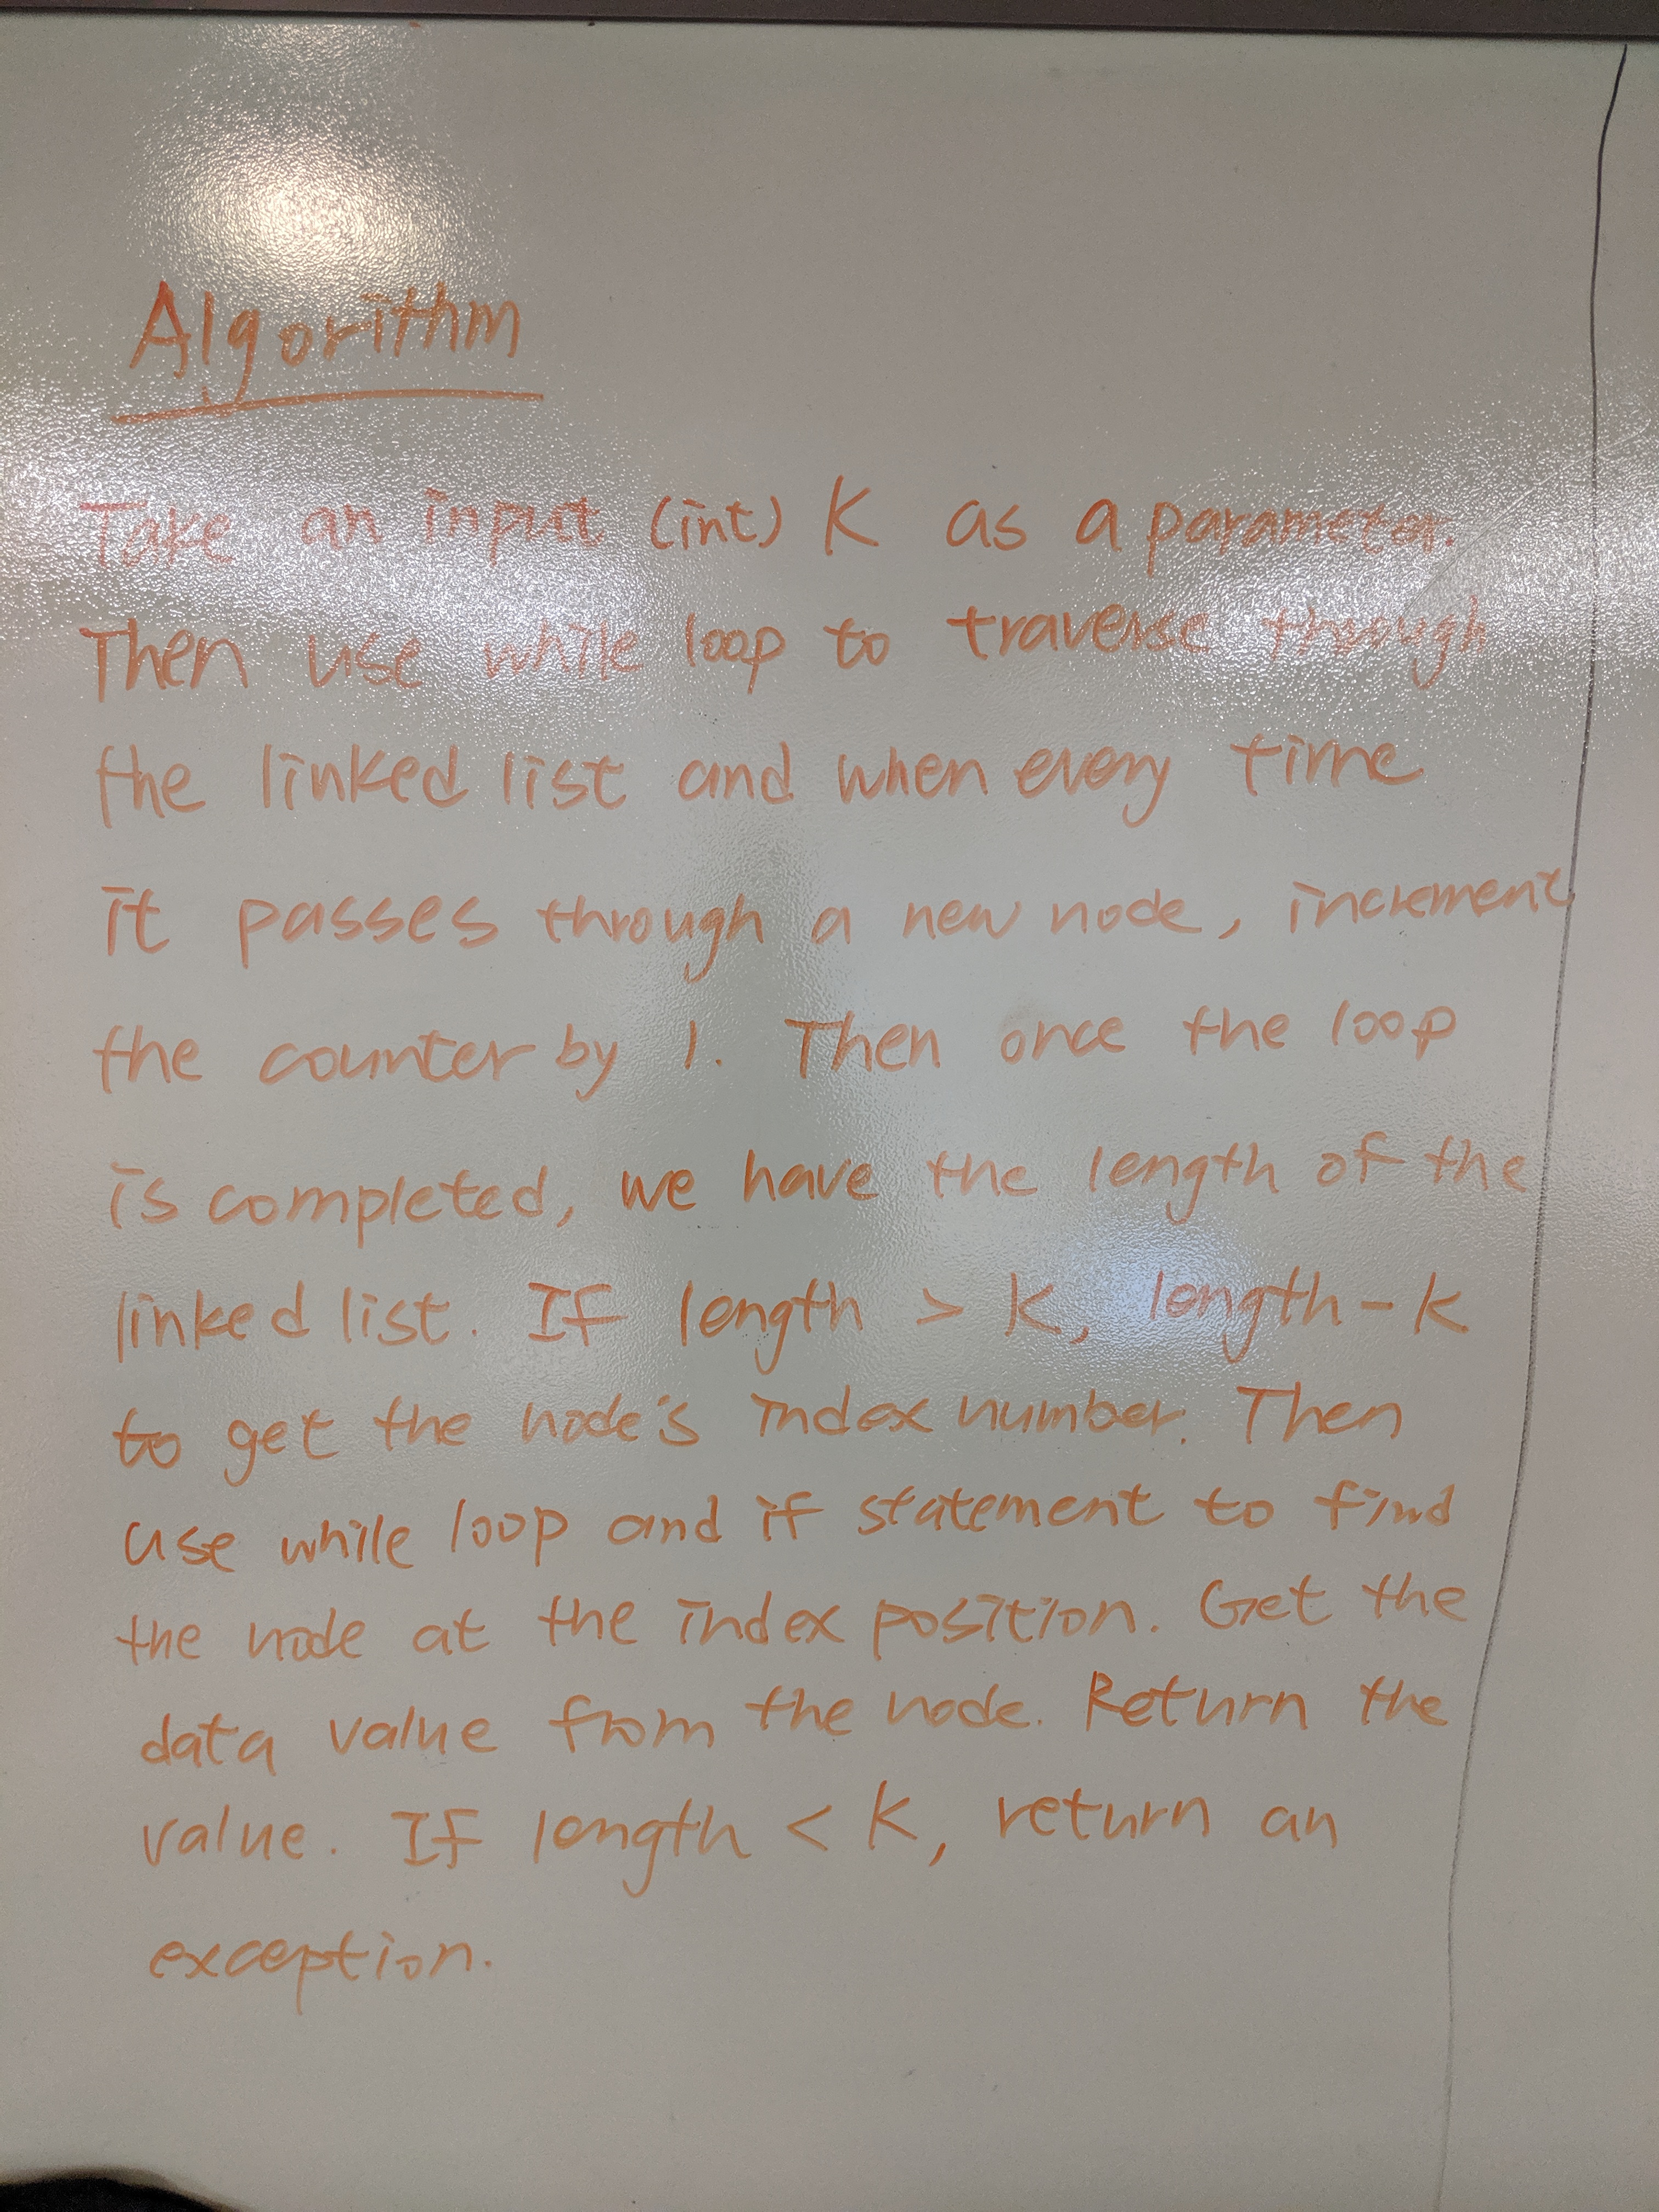 Algorithm
Take an input (int) K as a parameter.
Then use while loop to traverse through
the linked list and when every time
it passes through a new node, increment
the counter by 1. Then once the loop
is completed, we have the length of the
linked list. If length > K, length - K
to get the node's index number. Then
use while loop and if statement to find
the node at the index position. Get the
data value from the node. Return the
value. If length < K, return an
exception.